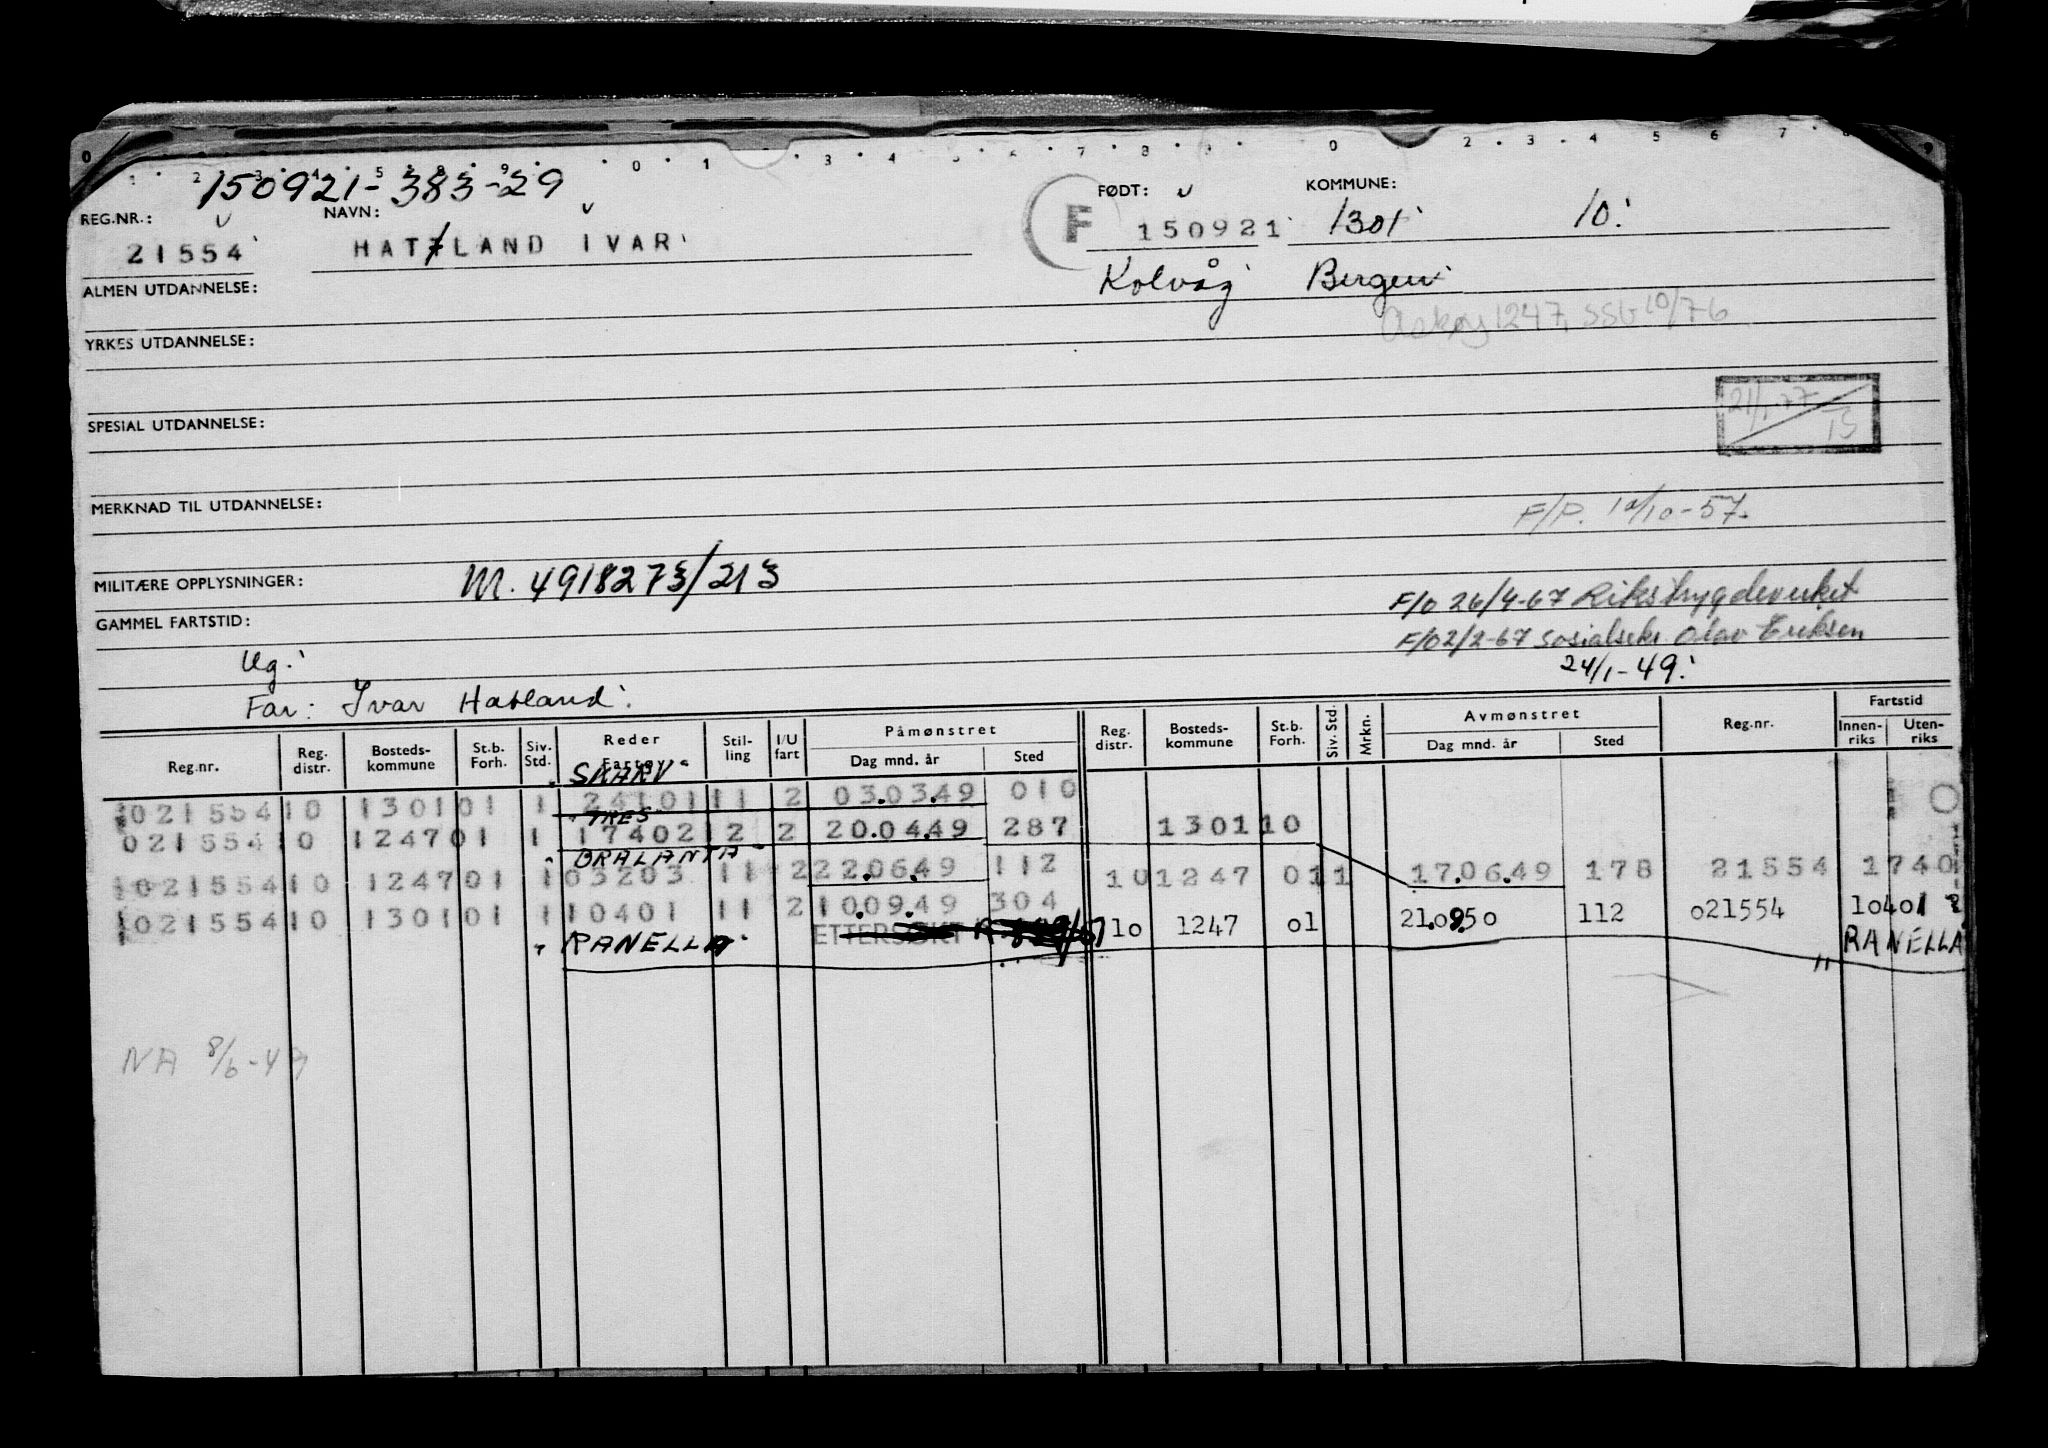 150921-383-29
REG.NR.: NAVN: FØDT: KOMMUNE:
21554 HATLAND IVAR F 150921 1301 10.
ALMEN UTDANNELSE: Kolvåg Bergen
Askøy 1247, SSB 10/76
YRKES UTDANNELSE:
21/1.77 IS
SPESIAL UTDANNELSE:
MERKNAD TIL UTDANNELSE: F/P. 12/10-57.
MILITÆRE OPPLYSNINGER: M. 4918273/213
F/O 26/4-67 Rikstrygdeverket
GAMMEL FARTSTID: F/O 2/2-67 Sosialsekr. Olav Eriksen
Ug. 24/1-49.
Far: Ivar Hatland.
Reg.nr. Reg. distr. Bosteds-kommune St.b. Forh. Siv. Std. Reder Fartøy Stil-ling I/U fart Påmønstret Dag mnd. år Sted Reg. distr. Bosteds-kommune St.b. Forh. Siv. Std. Mrkn. Avmønstret Dag mnd. år Sted Reg.nr. Fartstid Innen-riks Uten-riks
"SKARV"
021554 10 1301 01 1 24101 11 2 03.03.49 010
"TRES"
021554 10 1247 01 1 17402 12 2 20.04.49 287 1301 10
"BRALANTA"
021554 10 1247 01 1 03203 11 2 22.06.49 112 10 1247 01 1 17.06.49 178 21554 1740
021554 10 1301 01 1 10401 11 2 10.09.49 304 10 1247 01 21.0950 112 021554 10401 2
"RANELLA" ETTERSØKT "RANELLA
NA 8/6-49